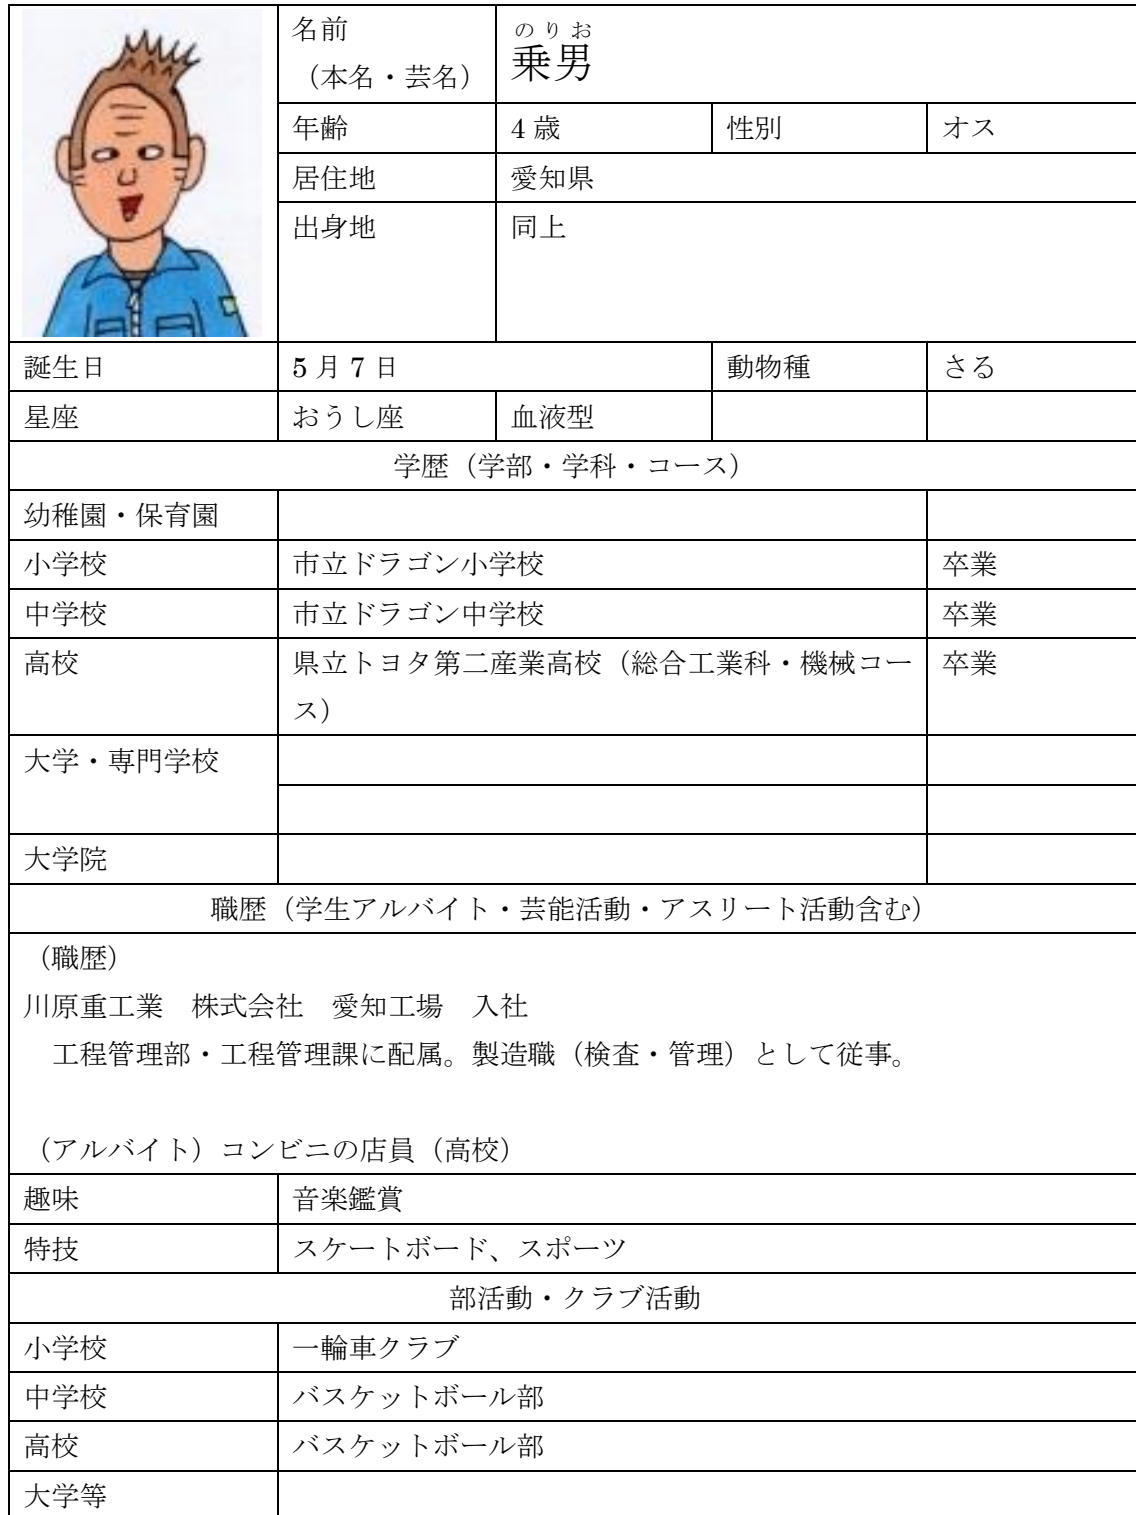 名前
（本名・芸名）
のりお
乗男
年齢 4 歳 性別 オス
居住地 愛知県
出身地 同上
誕生日 5 月 7 日 動物種 さる
星座 おうし座 血液型
学歴（学部・学科・コース）
幼稚園・保育園
小学校 市立ドラゴン小学校 卒業
中学校 市立ドラゴン中学校 卒業
高校 県立トヨタ第二産業高校（総合工業科・機械コー 卒業
ス）
大学・専門学校
大学院
職歴（学生アルバイト・芸能活動・アスリート活動含む）
（職歴）
川原重工業　株式会社　愛知工場　入社
　工程管理部・工程管理課に配属。製造職（検査・管理）として従事。
（アルバイト）コンビニの店員（高校）
趣味 音楽鑑賞
特技 スケートボード、スポーツ
部活動・クラブ活動
小学校 一輪車クラブ
中学校 バスケットボール部
高校 バスケットボール部
大学等